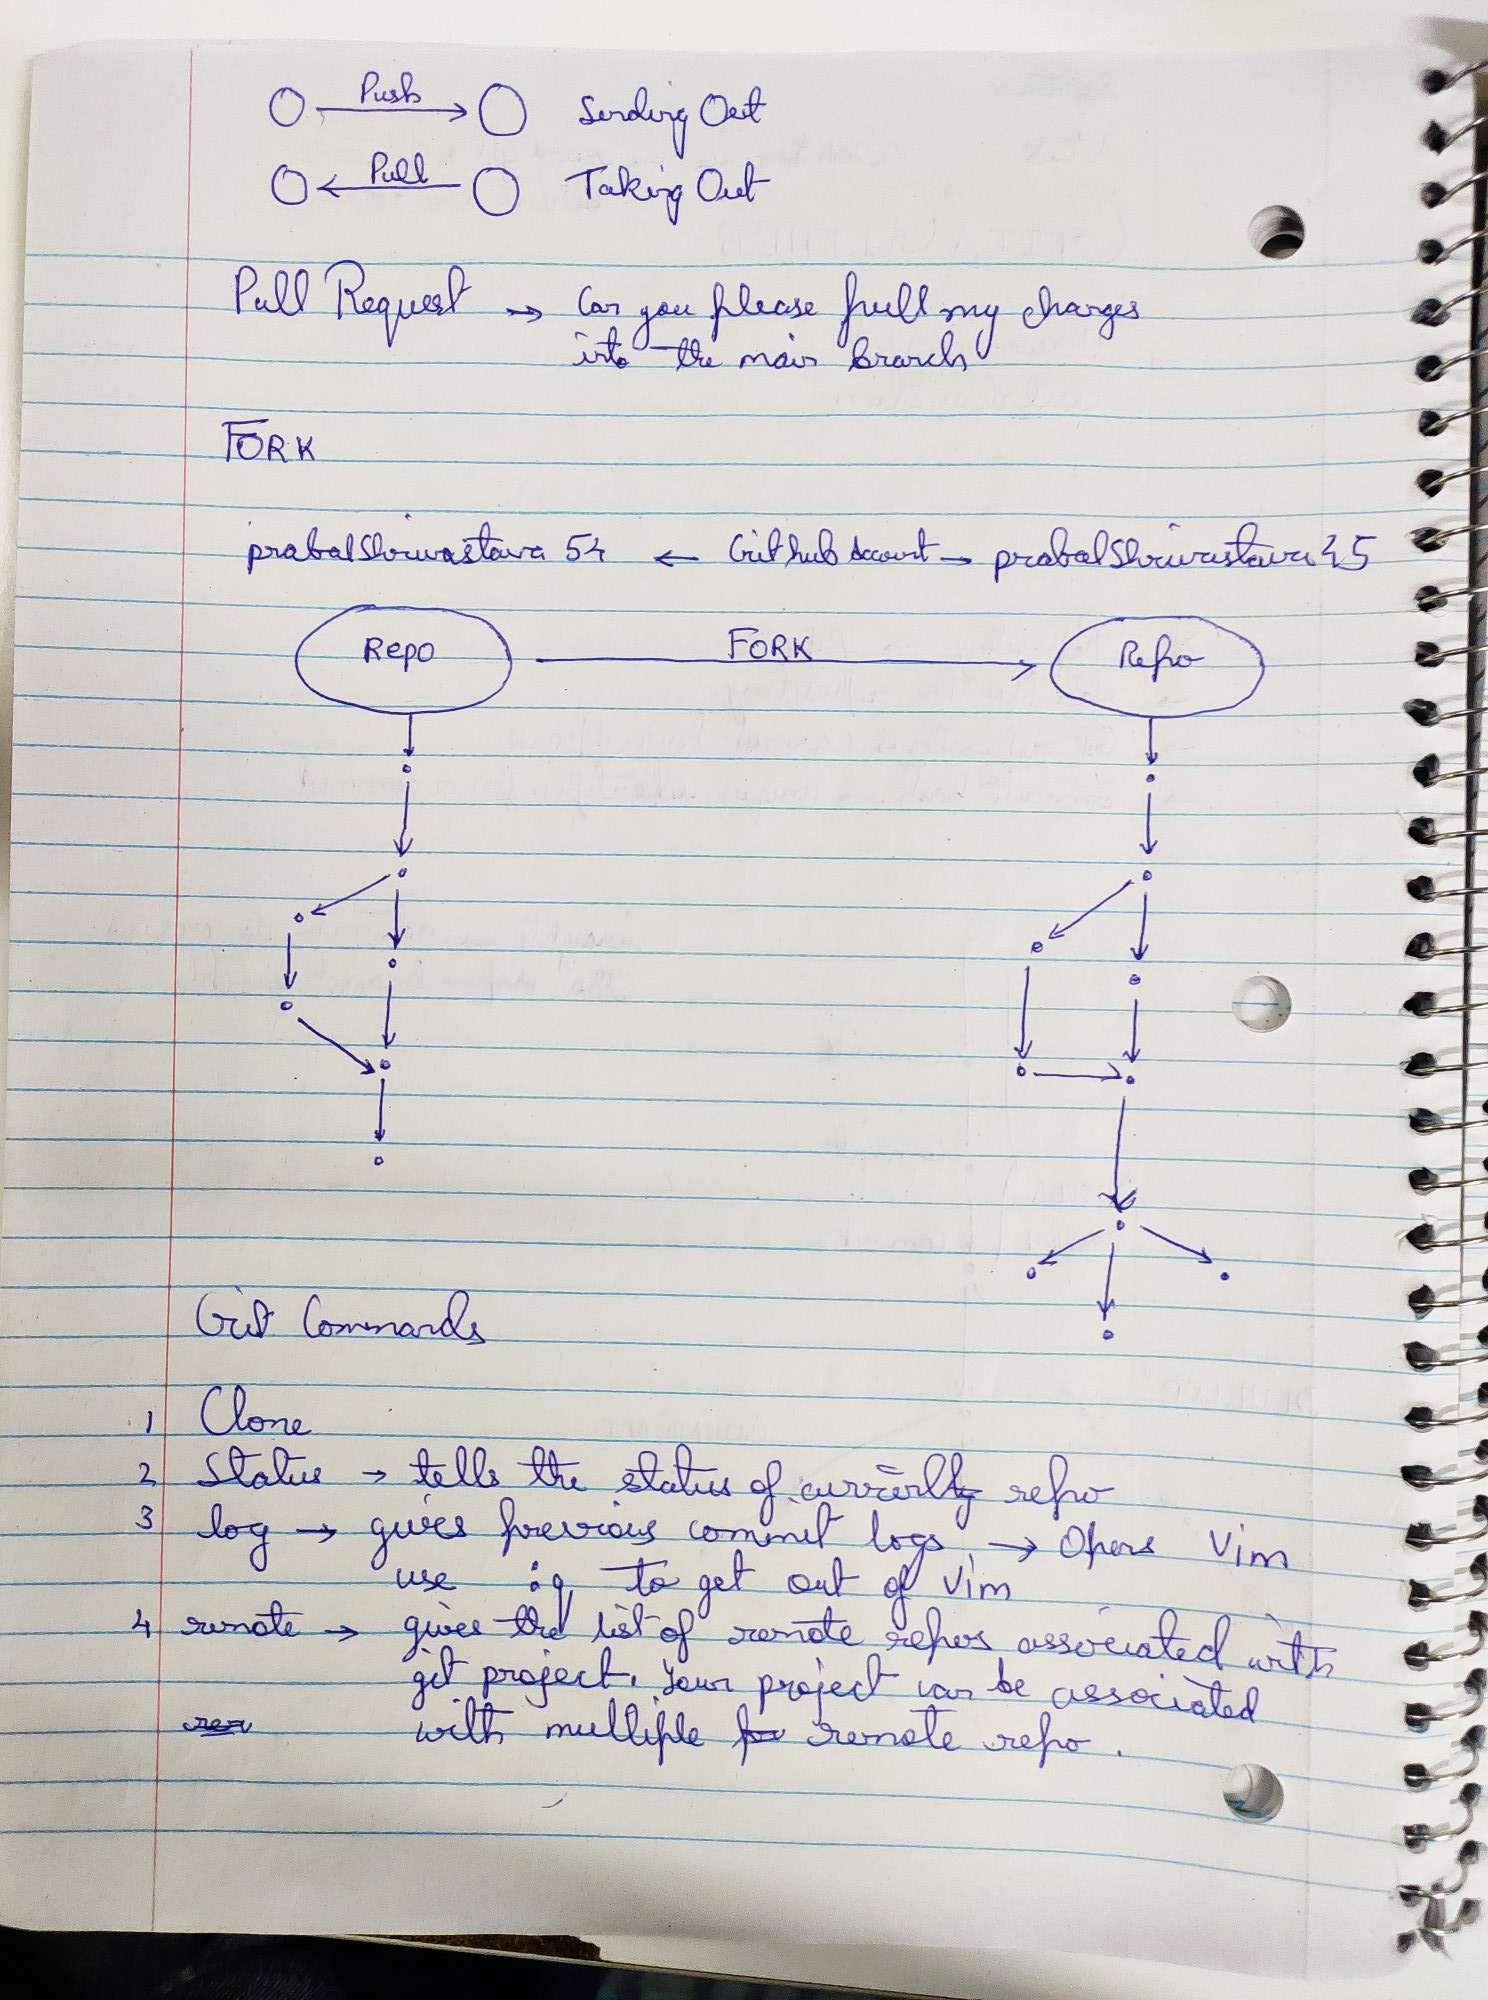 Push
Sending Out
Pull
Taking Out
Pull Request → Can you please pull my changes
into the main branch
FORK
prabalshrivastava 54 ← Github Account → prabalshrivastava 45
Repo
FORK
Repo
Git Commands
1 Clone
2 Status → tells the status of currently repo
3 log → gives previous commit logs → Opens Vim
use :q to get out of Vim
4 remote → gives the list of remote repos associated with
git project. Your project can be associated
with multiple remote repo.